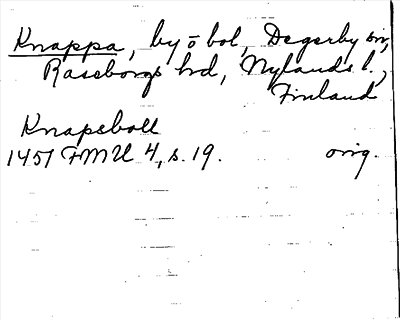 Knappa, by o bol, Degerby sn,
Raseborgs hd, Nylands l.,
Finland
Knapeboll
1451 FMU 4, s. 19. orig.